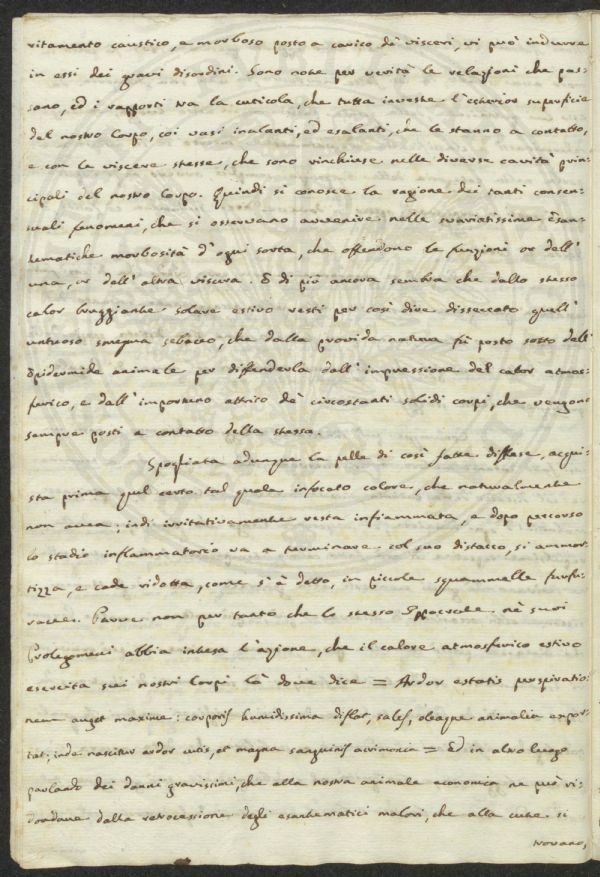 ritamento caustico, e morboso posto a carico de' visceri, vi può indurre
in essi dei gravi disordini. Sono note per verità le relazioni che pas-
sano, ed i rapporti tra la cuticola, che tutta investe l'esterior superficie
del nostro Corpo, coi vasi inalanti, ed esalanti, che le stanno a contatto,
e con le viscere stesse, che sono rinchiuse nelle diverse cavità prin-
cipali del nostro Corpo. Quindi si conosce la ragione dei tanti consen-
suali fenomeni, che si osservano avvenire nelle svariatissime Esan-
tematiche morbosità d'ogni sorta, che offendono le funzioni or dell'
una, or dell'altra viscera. E di più ancora sembra che dallo stesso
calor bruggiante solare estivo resti per così dire disseccato quell'
untuoso smegma sebaceo, che dalla provida natura fù posto sotto dell'
Epidermide animale per diffenderla dall'impressione del calor atmos-
ferico, e dall'importuno attrito de' circostanti solidi corpi, che vengono
sempre posti a contatto della stessa.
Spogliata adunque la pelle di così fatte diffese, acqui-
sta prima quel certo tal quale infocato colore, che naturalmente
non avea; indi irritativamente resta infiammata, e dopo percorso
lo stadio inflammatorio va a terminare col suo distacco, si ammor-
tizza, e cade ridotta, come s'è detto, in piccole squammelle furfu-
racee. Parve non per tanto che lo stesso Ippocrate ne' suoi
Prolegomeni abbia intesa l'azione, che il calore atmosferico estivo
esercita sui nostri Corpi là dove dice = Ardor estatis perspiratio-
nem auget maxime: corporis humidissima diflat, sales, oleaque animalia expor-
tat; inde nascitur ardor cutis, et magna sanguinis acrimonia = Ed in altro luogo
parlando dei danni gravissimi, che alla nostra animale economica ne può ri-
dondare dalla retrocessione degli esantematici malori, che alla cute si
trovano,